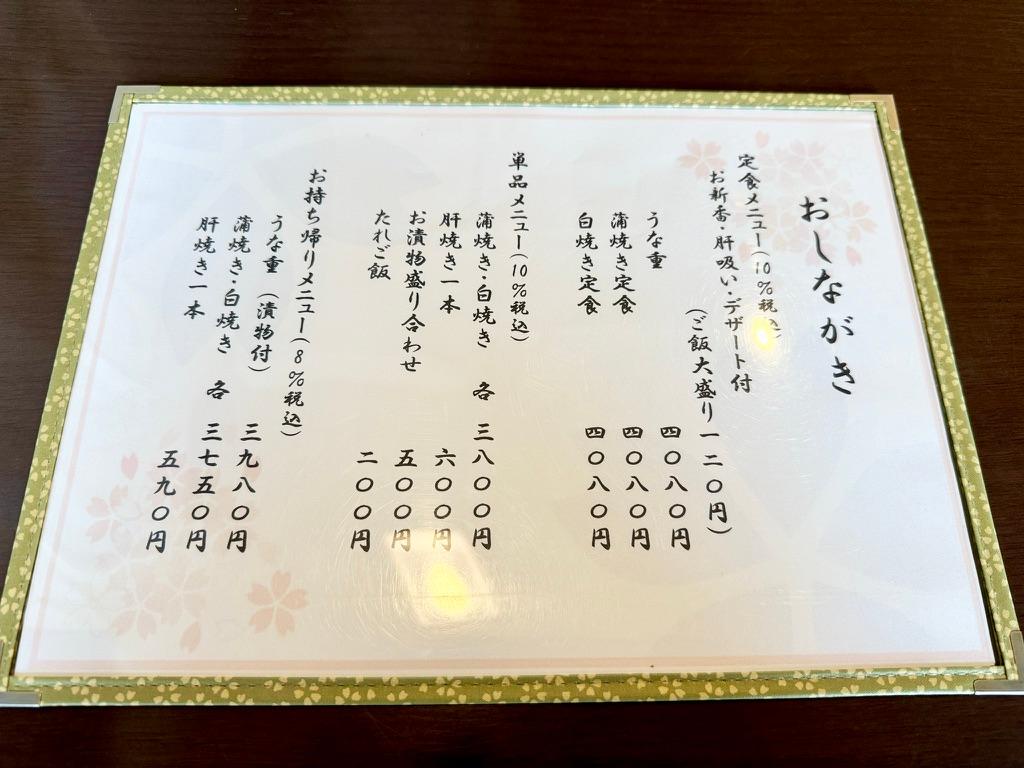 おしながき
定食メニュー(10%税込)
お新香・肝吸い・デザート付
(ご飯大盛り一二〇円)
うな重 四〇八〇円
蒲焼き定食 四〇八〇円
白焼き定食 四〇八〇円
単品メニュー(10%税込)
蒲焼き・白焼き 各 三八〇〇円
肝焼き一本 六〇〇円
お漬物盛り合わせ 五〇〇円
たれご飯 二〇〇円
お持ち帰りメニュー(8%税込)
うな重(漬物付) 三九八〇円
蒲焼き・白焼き 各 三七五〇円
肝焼き一本 五九〇円